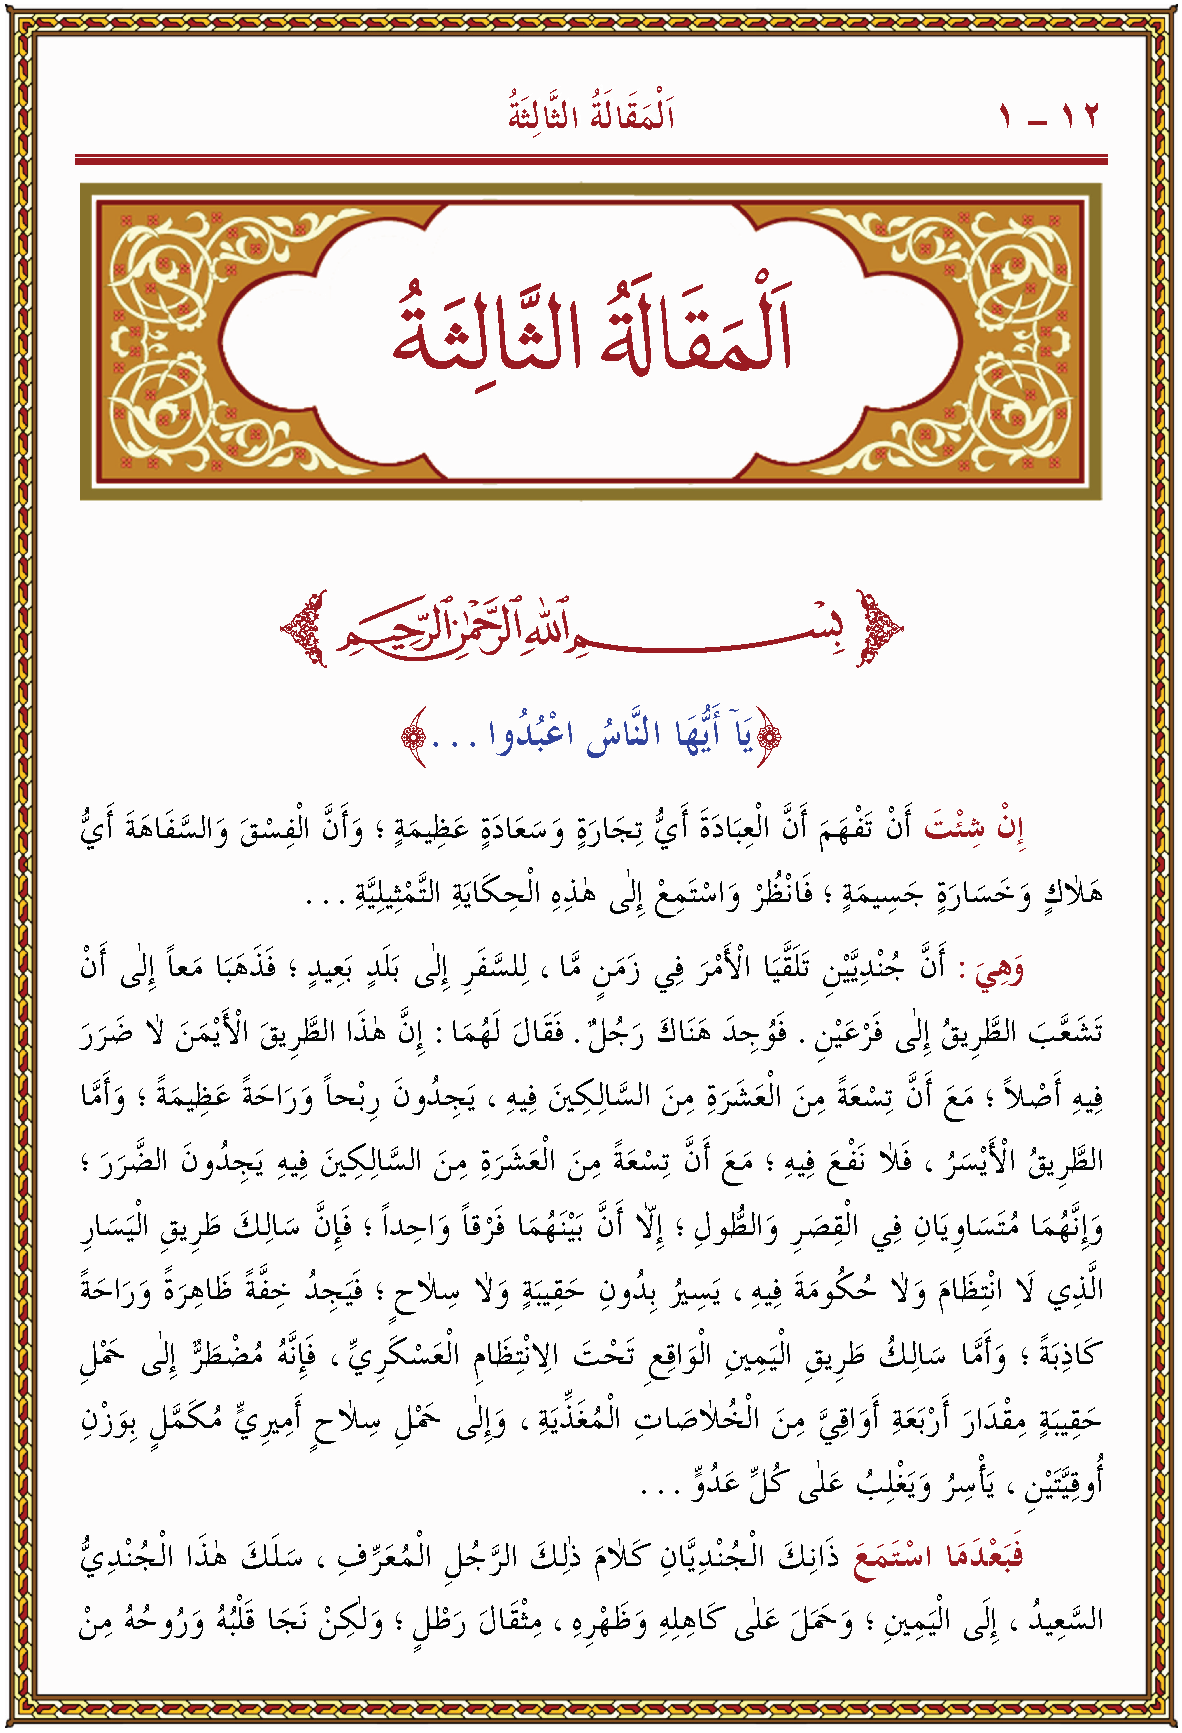 ١٢ – ١ اَلْمَقَالَةُ الثَّالِثَةُ
اَلْمَقَالَةُ الثَّالِثَةُ
بِسْمِ اللهِ الرَّحْمٰنِ الرَّحِيمِ
﴿يَآ أَيُّهَا النَّاسُ اعْبُدُوا . . .﴾
إِنْ شِئْتَ أَنْ تَفْهَمَ أَنَّ الْعِبَادَةَ أَيُّ تِجَارَةٍ وَسَعَادَةٍ عَظِيمَةٍ ؛ وَأَنَّ الْفِسْقَ وَالسَّفَاهَةَ أَيُّ
هَلاٰكٍ وَخَسَارَةٍ جَسِيمَةٍ ؛ فَانْظُرْ وَاسْتَمِعْ إِلٰى هٰذِهِ الْحِكَايَةِ التَّمْثِيلِيَّةِ . . .
وَهِيَ : أَنَّ جُنْدِيَّيْنِ تَلَقَّيَا الْأَمْرَ فِي زَمَنٍ مَّا ، لِلسَّفَرِ إِلٰى بَلَدٍ بَعِيدٍ ؛ فَذَهَبَا مَعاً إِلٰى أَنْ
تَشَعَّبَ الطَّرِيقُ إِلٰى فَرْعَيْنِ . فَوُجِدَ هَنَاكَ رَجُلٌ . فَقَالَ لَهُمَا : إِنَّ هٰذَا الطَّرِيقَ الْأَيْمَنَ لاٰ ضَرَرَ
فِيهِ أَصْلاً ؛ مَعَ أَنَّ تِسْعَةً مِنَ الْعَشَرَةِ مِنَ السَّالِكِينَ فِيهِ ، يَجِدُونَ رِبْحاً وَرَاحَةً عَظِيمَةً ؛ وَأَمَّا
الطَّرِيقُ الْأَيْسَرُ ، فَلاٰ نَفْعَ فِيهِ ؛ مَعَ أَنَّ تِسْعَةً مِنَ الْعَشَرَةِ مِنَ السَّالِكِينَ فِيهِ يَجِدُونَ الضَّرَرَ ؛
وَإِنَّهُمَا مُتَسَاوِيَانِ فِي الْقِصَرِ وَالطُّولِ ؛ إِلاّٰ أَنَّ بَيْنَهُمَا فَرْقاً وَاحِداً ؛ فَإِنَّ سَالِكَ طَرِيقِ الْيَسَارِ
الَّذِي لَا انْتِظَامَ وَلاٰ حُكُومَةَ فِيهِ ، يَسِيرُ بِدُونِ حَقِيبَةٍ وَلاٰ سِلاٰحٍ ؛ فَيَجِدُ خِفَّةً ظَاهِرَةً وَرَاحَةً
كَاذِبَةً ؛ وَأَمَّا سَالِكُ طَرِيقِ الْيَمِينِ الْوَاقِعِ تَحْتَ الِانْتِظَامِ الْعَسْكَرِيِّ ، فَإِنَّهُ مُضْطَرٌّ إِلٰى حَمْلِ
حَقِيبَةٍ مِقْدَارَ أَرْبَعَةِ أَوَاقِيَّ مِنَ الْخُلاٰصَاتِ الْمُغَذِّيَةِ ، وَإِلٰى حَمْلِ سِلاٰحٍ أَمِيرِيٍّ مُكَمَّلٍ بِوَزْنِ
أُوقِيَّتَيْنِ ، يَأْسِرُ وَيَغْلِبُ عَلٰى كُلِّ عَدُوٍّ . . .
فَبَعْدَمَا اسْتَمَعَ ذَانِكَ الْجُنْدِيَّانِ كَلاٰمَ ذٰلِكَ الرَّجُلِ الْمُعَرِّفِ ، سَلَكَ هٰذَا الْجُنْدِيُّ
السَّعِيدُ ، إِلَى الْيَمِينِ ؛ وَحَمَلَ عَلٰى كَاهِلِهِ وَظَهْرِهِ ، مِثْقَالَ رَطْلٍ ؛ وَلٰكِنْ نَجَا قَلْبُهُ وَرُوحُهُ مِنْ